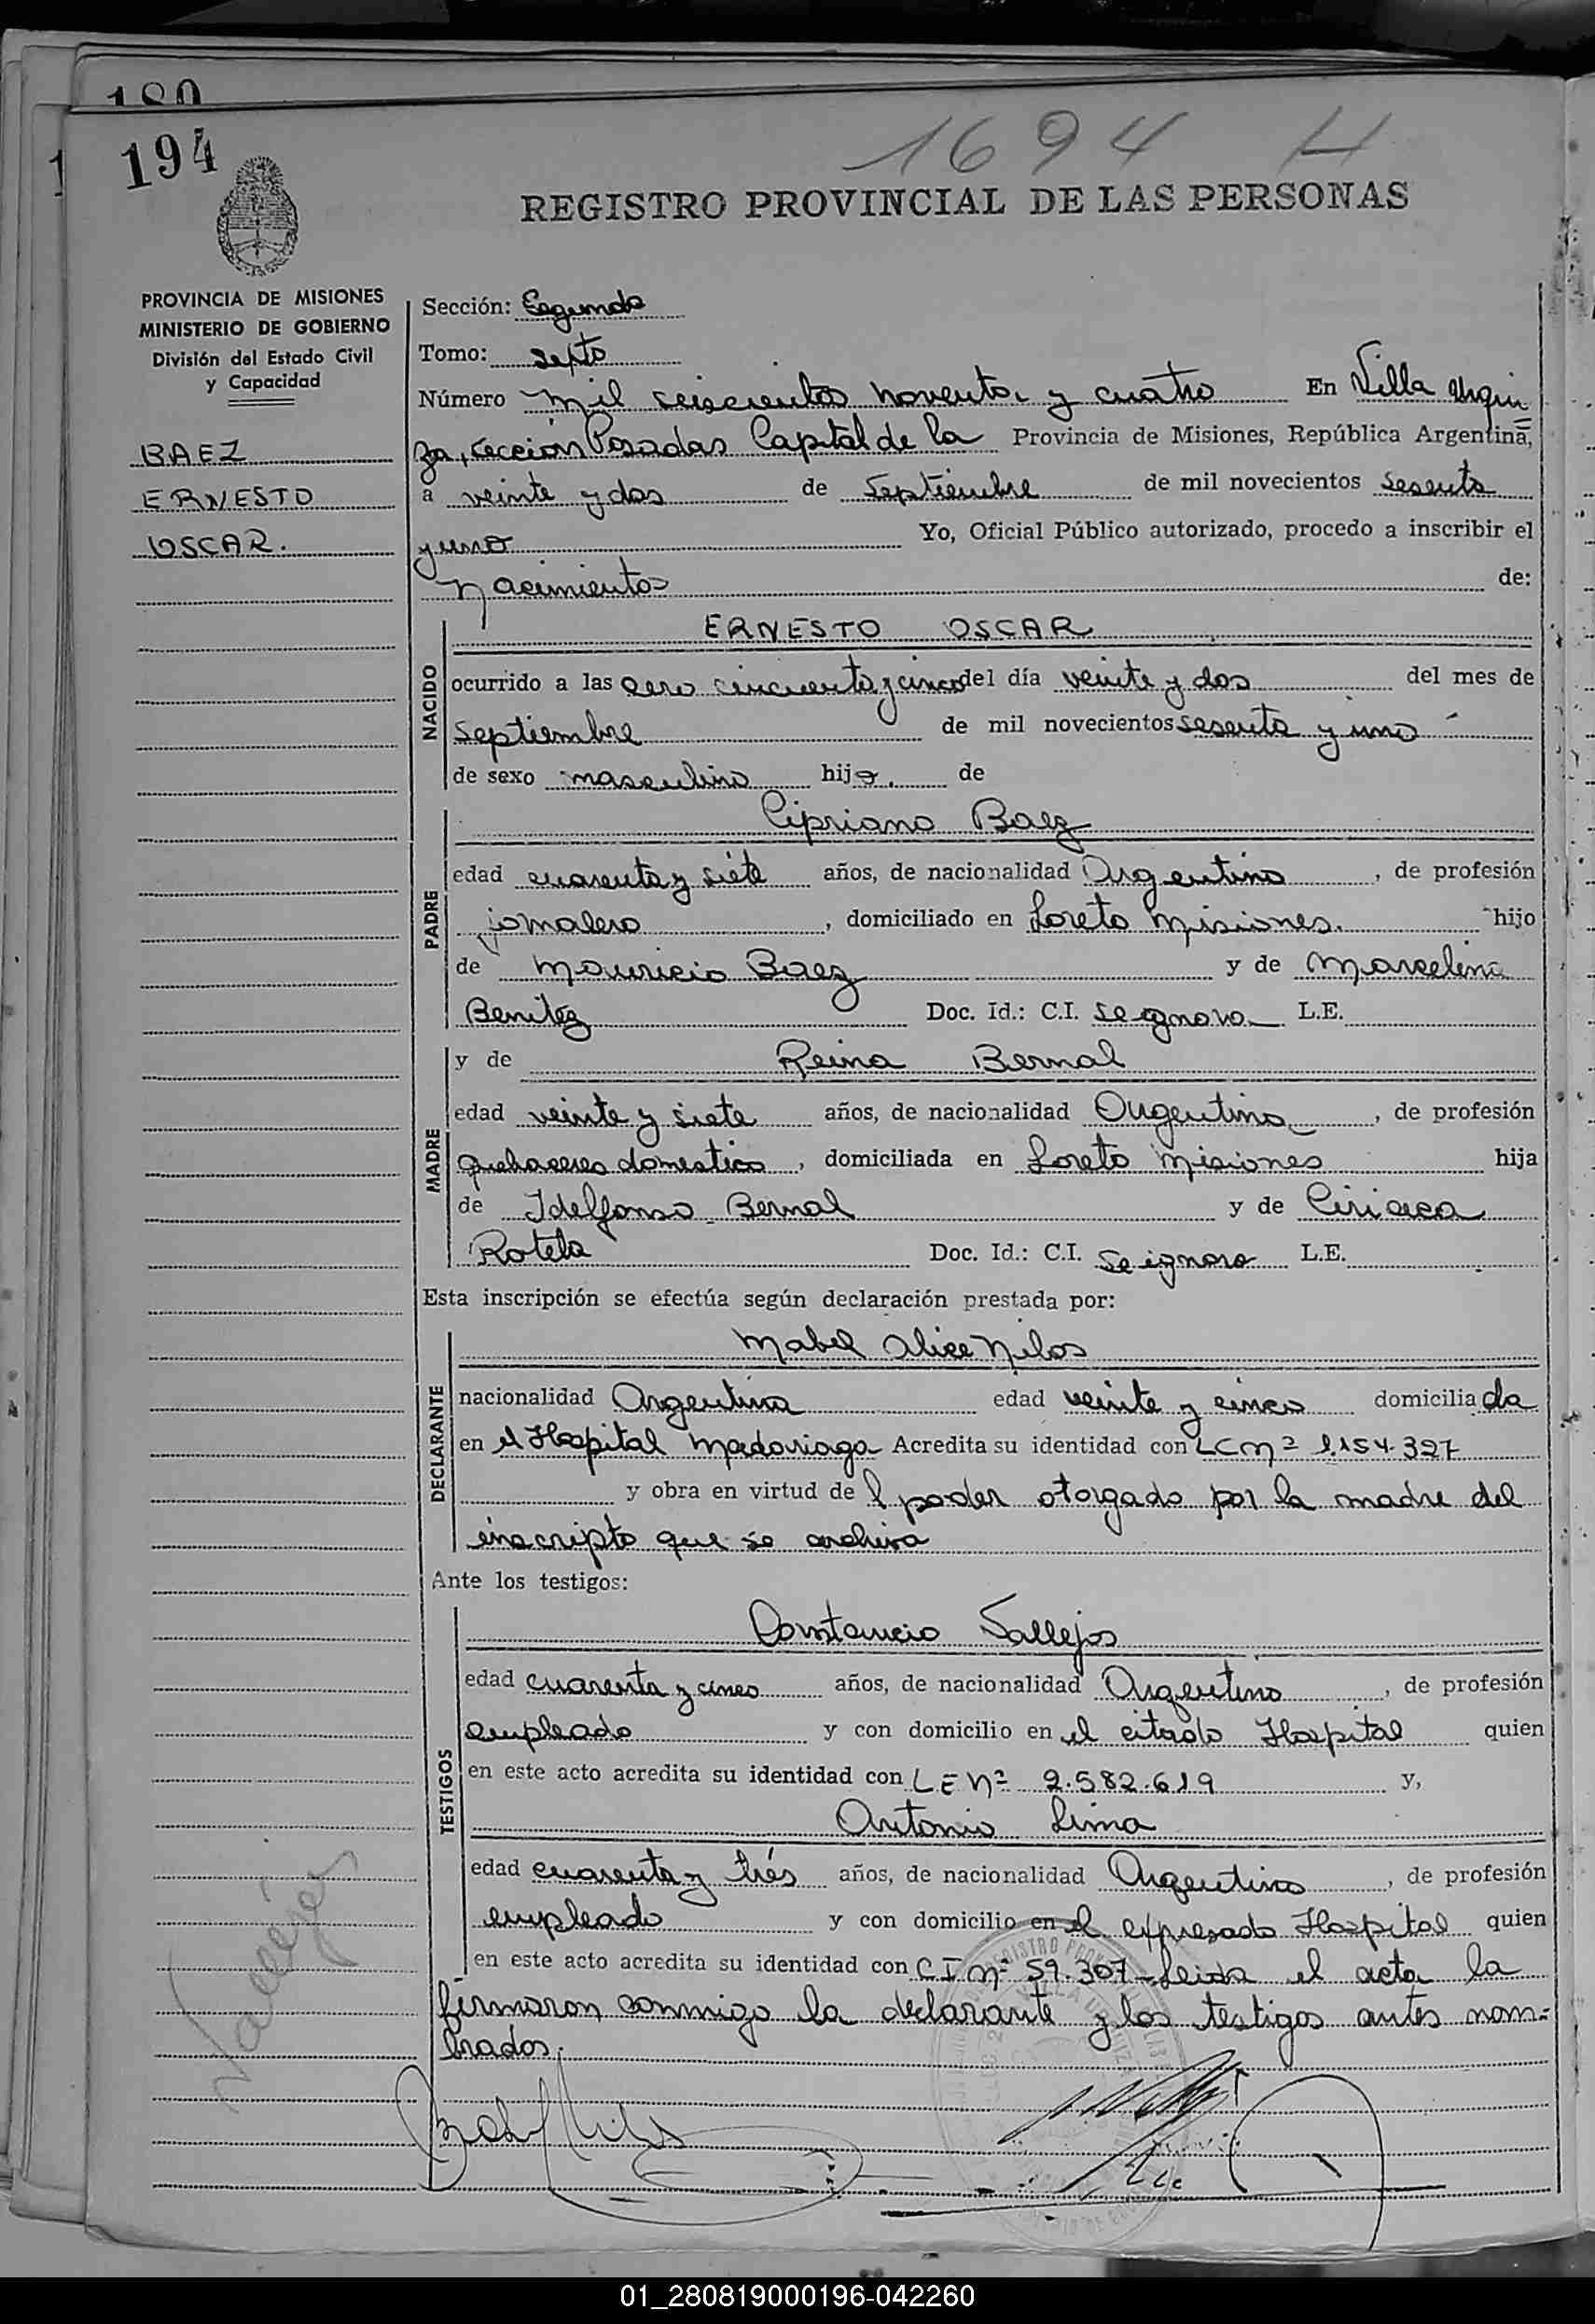 180
194
1694 H
REGISTRO PROVINCIAL DE LAS PERSONAS
PROVINCIA DE MISIONES
MINISTERIO DE GOBIERNO
División del Estado Civil
y Capacidad
BAEZ
ERNESTO
OSCAR.
Sección: Segunda
Tomo: septo
Número mil seiscientos noventa y cuatro En Villa Urqui
za, sección Posadas Capital de la Provincia de Misiones, República Argentina,
a veinte y dos de Septiembre de mil novecientos sesenta
y uno Yo, Oficial Público autorizado, procedo a inscribir el
nacimiento de:
NACIDO
ERNESTO OSCAR
ocurrido a las cero cincuenta y cinco del día veinte y dos del mes de
septiembre de mil novecientos sesenta y uno
de sexo masculino hijo. de
PADRE
Cipriano Baez
edad cuarenta y siete años, de nacionalidad Argentino, de profesión
jornalero, domiciliado en Loreto Misiones. hijo
de Mauricio Baez y de Marcelina
Benitez Doc. Id.: C.I. se ignora L.E.
MADRE
y de Reina Bernal
edad veinte y siete años, de nacionalidad Argentina, de profesión
quehaceres domestico, domiciliada en Loreto Misiones hija
de Idelfonso Bernal y de Ciriaca
Rotela Doc. Id.: C.I. se ignora L.E.
Esta inscripción se efectúa según declaración prestada por:
DECLARANTE
Mabel Alice Nilos
nacionalidad Argentina edad veinte y cinco domiciliada
en el Hospital Madariaga Acredita su identidad con LC Nº 1.154.327
y obra en virtud del poder otorgado por la madre del
inscripto que se archiva
Ante los testigos:
TESTIGOS
Constancio Vallejos
edad cuarenta y cinco años, de nacionalidad Argentino, de profesión
empleado y con domicilio en el citado Hospital quien
en este acto acredita su identidad con LE Nº 2.582.619 y,
Antonio Lima
edad cuarenta y tres años, de nacionalidad Argentino, de profesión
empleado y con domicilio en el expresado Hospital quien
en este acto acredita su identidad con CI Nº 59.307 - Leida el acta la
firmaron conmigo la declarante y los testigos antes nom=
brados.
01_280819000196-042260